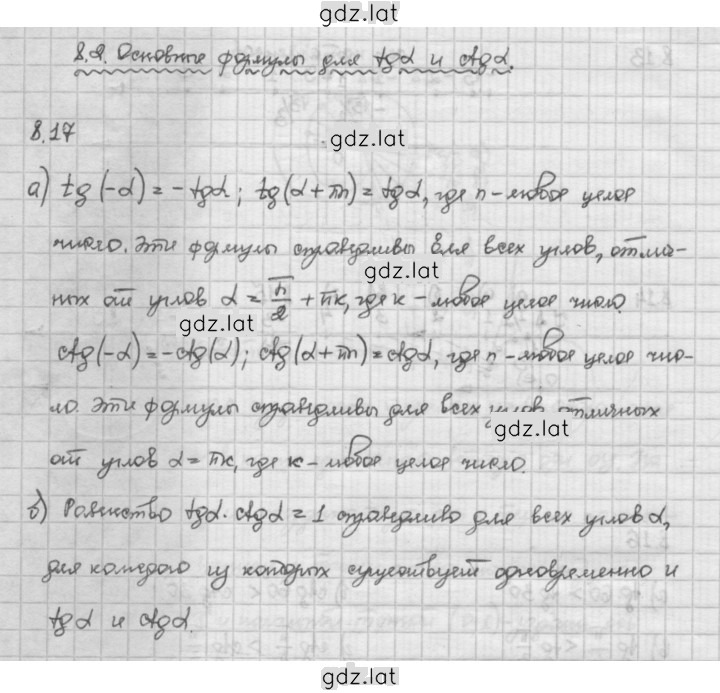 gdz.lat
8.2. Основные формулы для tgα и ctgα.
8.17
gdz.lat
а) tg(-α) = -tgα; tg(α+πn) = tgα, где n - любое целое
число. Эти формулы справедливы для всех углов, отлич-
gdz.lat
ных от углов α = π/2 + πk, где k - любое целое число.
gdz.lat
ctg(-α) = -ctg(α); ctg(α+πn) = ctgα, где n - любое целое чис-
ло. Эти формулы справедливы для всех углов, отличных
gdz.lat
от углов α = πk, где k - любое целое число.
б) Равенство tgα·ctgα = 1 справедливо для всех углов α,
для каждого из которых существует одновременно и
tgα и ctgα.
gdz.lat